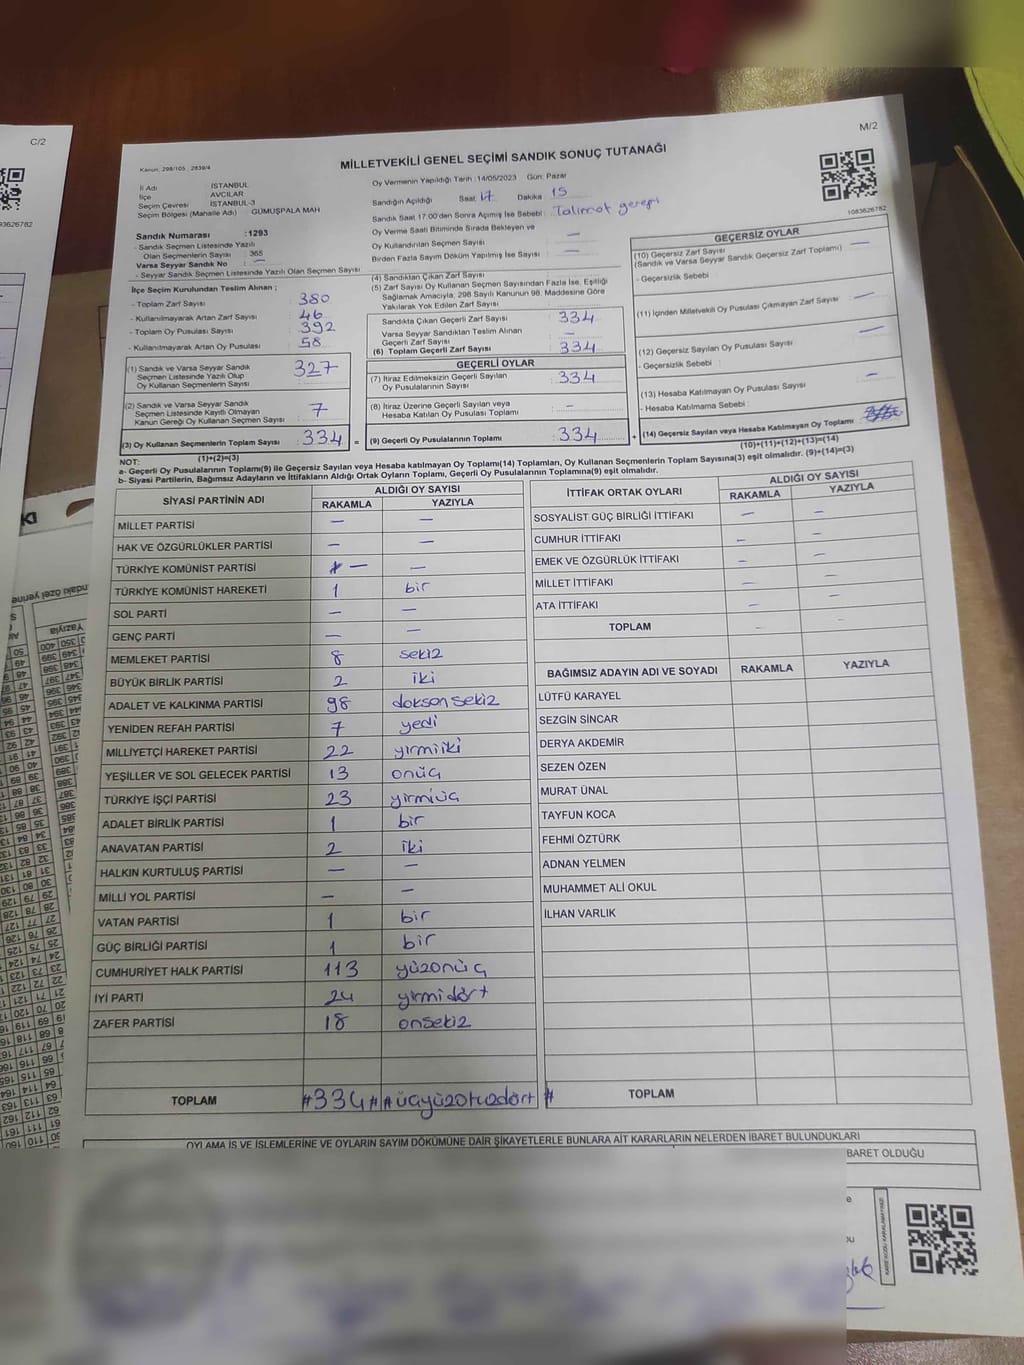 C/2
M/2
Kanun: 298/105 , 2839/4
MİLLETVEKİLİ GENEL SEÇİMİ SANDIK SONUÇ TUTANAĞI
İl Adı İSTANBUL
İlçe AVCILAR
Seçim Çevresi İSTANBUL-3
Seçim Bölgesi (Mahalle Adı) GÜMÜŞPALA MAH
Oy Vermenin Yapıldığı Tarih :14/05/2023 Gün: Pazar
Sandığın Açıldığı Saat: 17 Dakika : 15
Sandık Saat 17:00'den Sonra Açılmış İse Sebebi : Talimat gereği
Oy Verme Saati Bitiminde Sırada Bekleyen ve
Oy Kullandırılan Seçmen Sayısı : —
Birden Fazla Sayım Döküm Yapılmış İse Sayısı : —
1083626782
Sandık Numarası : 1293
- Sandık Seçmen Listesinde Yazılı
Olan Seçmenlerin Sayısı : 365
Varsa Seyyar Sandık No : —
- Seyyar Sandık Seçmen Listesinde Yazılı Olan Seçmen Sayısı
İlçe Seçim Kurulundan Teslim Alınan ;
- Toplam Zarf Sayısı : 380
- Kullanılmayarak Artan Zarf Sayısı : 46
- Toplam Oy Pusulası Sayısı : 392
- Kullanılmayarak Artan Oy Pusulası : 58
(1) Sandık ve Varsa Seyyar Sandık
Seçmen Listesinde Yazılı Olup
Oy Kullanan Seçmenlerin Sayısı : 327
(2) Sandık ve Varsa Seyyar Sandık
Seçmen Listesinde Kayıtlı Olmayan
Kanun Gereği Oy Kullanan Seçmen Sayısı : 7
(3) Oy Kullanan Seçmenlerin Toplam Sayısı : 334 =
(1)+(2)=(3)
(4) Sandıktan Çıkan Zarf Sayısı
(5) Zarf Sayısı Oy Kullanan Seçmen Sayısından Fazla İse, Eşitliği
Sağlamak Amacıyla, 298 Sayılı Kanunun 98. Maddesine Göre
Yakılarak Yok Edilen Zarf Sayısı
Sandıkta Çıkan Geçerli Zarf Sayısı : 334
Varsa Seyyar Sandıktan Teslim Alınan
Geçerli Zarf Sayısı : —
(6) Toplam Geçerli Zarf Sayısı : 334
GEÇERLİ OYLAR
(7) İtiraz Edilmeksizin Geçerli Sayılan
Oy Pusulalarının Sayısı : 334
(8) İtiraz Üzerine Geçerli Sayılan veya
Hesaba Katılan Oy Pusulası Toplamı : —
(9) Geçerli Oy Pusulalarının Toplamı : 334 +
GEÇERSİZ OYLAR
(10) Geçersiz Zarf Sayısı
(Sandık ve Varsa Seyyar Sandık Geçersiz Zarf Toplamı) : —
- Geçersizlik Sebebi :
(11) İçinden Milletvekili Oy Pusulası Çıkmayan Zarf Sayısı : —
(12) Geçersiz Sayılan Oy Pusulası Sayısı : —
- Geçersizlik Sebebi :
(13) Hesaba Katılmayan Oy Pusulası Sayısı : —
- Hesaba Katılmama Sebebi :
(14) Geçersiz Sayılan veya Hesaba Katılmayan Oy Toplamı :
(10)+(11)+(12)+(13)=(14)
NOT:
a- Geçerli Oy Pusulalarının Toplamı(9) ile Geçersiz Sayılan veya Hesaba katılmayan Oy Toplamı(14) Toplamları, Oy Kullanan Seçmenlerin Toplam Sayısına(3) eşit olmalıdır. (9)+(14)=(3)
b- Siyasi Partilerin, Bağımsız Adayların ve İttifakların Aldığı Ortak Oyların Toplamı, Geçerli Oy Pusulalarının Toplamına(9) eşit olmalıdır.
SİYASİ PARTİNİN ADI ALDIĞI OY SAYISI
RAKAMLA YAZIYLA
MİLLET PARTİSİ — —
HAK VE ÖZGÜRLÜKLER PARTİSİ — —
TÜRKİYE KOMÜNİST PARTİSİ — —
TÜRKİYE KOMÜNİST HAREKETİ 1 bir
SOL PARTİ — —
GENÇ PARTİ — —
MEMLEKET PARTİSİ 8 sekiz
BÜYÜK BİRLİK PARTİSİ 2 iki
ADALET VE KALKINMA PARTİSİ 98 doksan sekiz
YENİDEN REFAH PARTİSİ 7 yedi
MİLLİYETÇİ HAREKET PARTİSİ 22 yirmiiki
YEŞİLLER VE SOL GELECEK PARTİSİ 13 onüç
TÜRKİYE İŞÇİ PARTİSİ 23 yirmiüç
ADALET BİRLİK PARTİSİ 1 bir
ANAVATAN PARTİSİ 2 iki
HALKIN KURTULUŞ PARTİSİ — —
MİLLİ YOL PARTİSİ — —
VATAN PARTİSİ 1 bir
GÜÇ BİRLİĞİ PARTİSİ 1 bir
CUMHURİYET HALK PARTİSİ 113 yüzonüç
İYİ PARTİ 24 yirmidört
ZAFER PARTİSİ 18 onsekiz
TOPLAM #334# #üçyüzotuzdört#
İTTİFAK ORTAK OYLARI ALDIĞI OY SAYISI
RAKAMLA YAZIYLA
SOSYALİST GÜÇ BİRLİĞİ İTTİFAKI — —
CUMHUR İTTİFAKI — —
EMEK VE ÖZGÜRLÜK İTTİFAKI — —
MİLLET İTTİFAKI — —
ATA İTTİFAKI — —
TOPLAM — —
BAĞIMSIZ ADAYIN ADI VE SOYADI RAKAMLA YAZIYLA
LÜTFÜ KARAYEL
SEZGİN SİNCAR
DERYA AKDEMİR
SEZEN ÖZEN
MURAT ÜNAL
TAYFUN KOCA
FEHMİ ÖZTÜRK
ADNAN YELMEN
MUHAMMET ALİ OKUL
İLHAN VARLIK
TOPLAM
OYLAMA İŞ VE İŞLEMLERİNE VE OYLARIN SAYIM DÖKÜMÜNE DAİR ŞİKAYETLERLE BUNLARA AİT KARARLARIN NELERDEN İBARET BULUNDUKLARI
BARET OLDUĞU